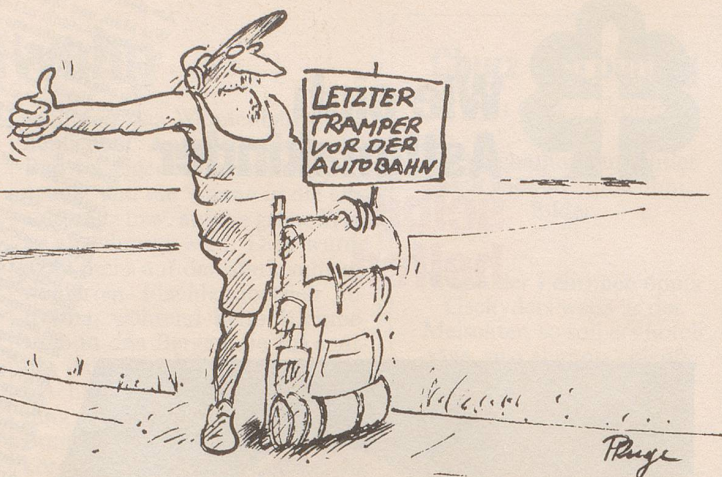 LETZTER
TRAMPER
VOR DER
AUTOBAHN